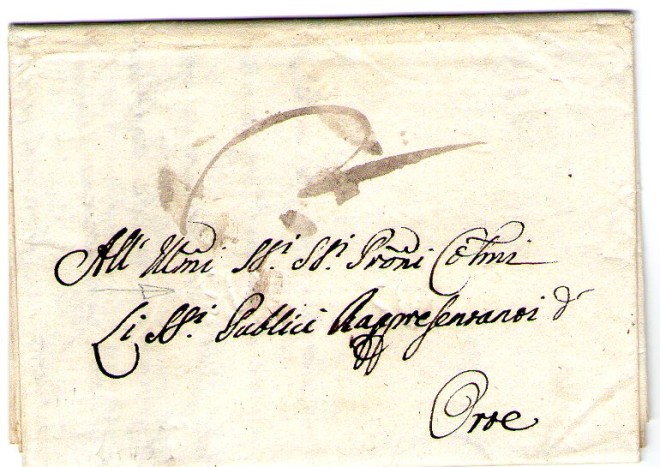 All' Illmi SS.i SS.i Proni Colmi
Li SS.i Publici Rappresentanti d'
Orte